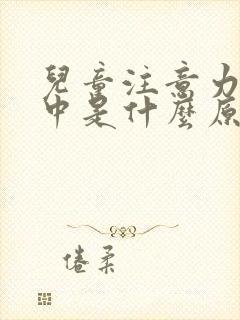 兒童注意力
中是什麼原
倦柔